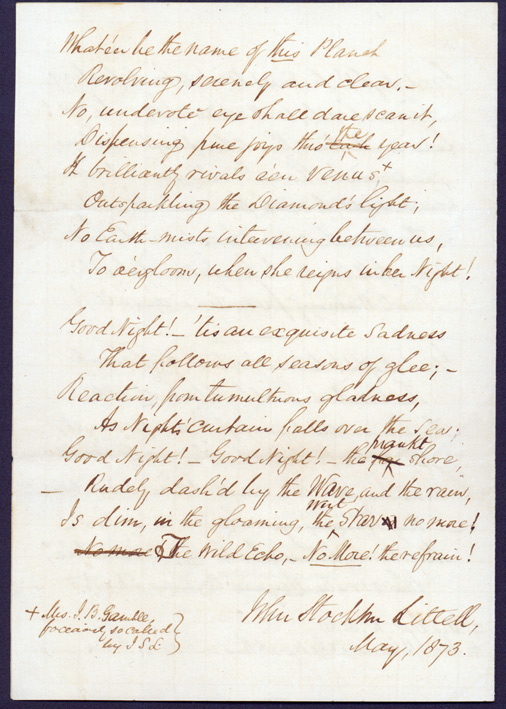 What e'en be the name of this Planet
Revolving, serenely and clear. -
No, undevote eye shall dare scan it,
Dispensing pure joys thro' the year!
It brilliantly rivals e'en Venus, +
Outsparkling the Diamond's light;
No Earth-mists intervening between us,
To o'ergloom, when she reigns in her Night!
Good Night! - 'tis an exquisite Sadness
That follows all seasons of glee; -
Reaction, from tumultuous gladness,
As Night's Curtain falls over the Sea;
Good Night! - Good Night! - the shore,
- Rudely dash'd by the Wave, and the rain,
Is dim, in the gloaming, the Star no more!
No more The Wild Echo, - No More! the refrain!
+ Mrs. J. B. Gamble,
so called
by J S L
John Stockton Littell,
May, 1873.